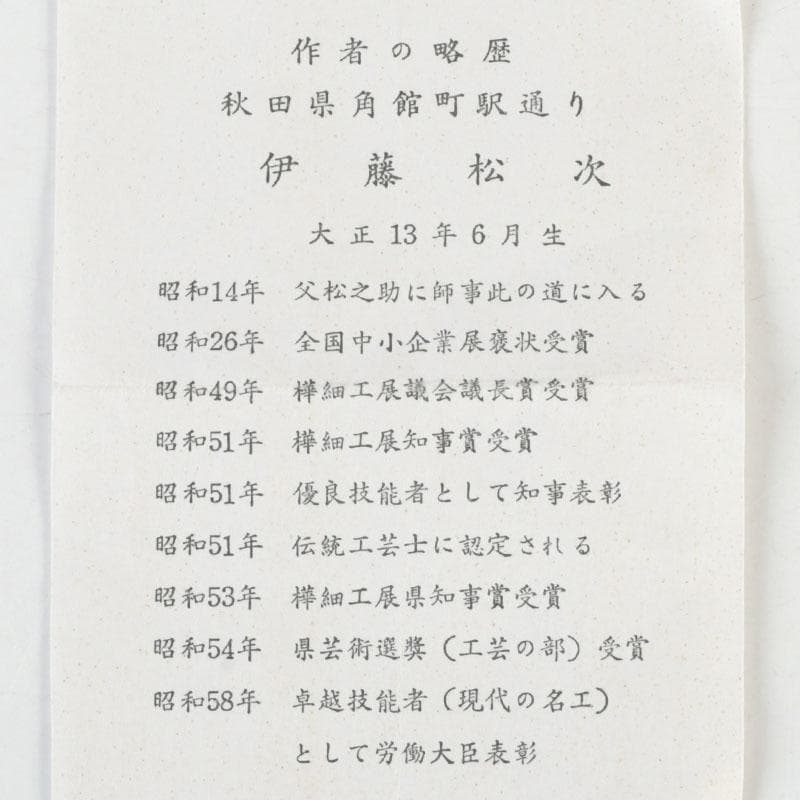 作者の略歴
秋田県角館町駅通り
伊藤松次
大正13年6月生
昭和14年 父松之助に師事此の道に入る
昭和26年 全国中小企業展褒状受賞
昭和49年 樺細工展議会議長賞受賞
昭和51年 樺細工展知事賞受賞
昭和51年 優良技能者として知事表彰
昭和51年 伝統工芸士に認定される
昭和53年 樺細工展県知事賞受賞
昭和54年 県芸術選奬(工芸の部)受賞
昭和58年 卓越技能者(現代の名工)
として労働大臣表彰